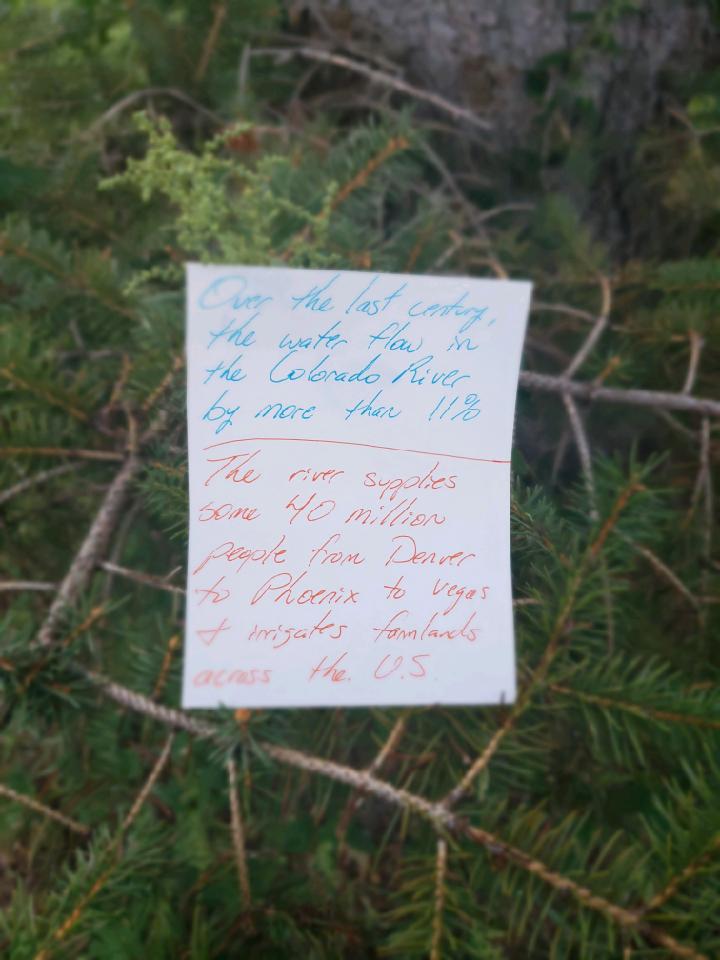 Over the last century,
the water flow in
the Colorado River
by more than 11%
The river supplies
some 40 million
people from Denver
to Phoenix to Vegas
& irrigates farmlands
across the U.S.